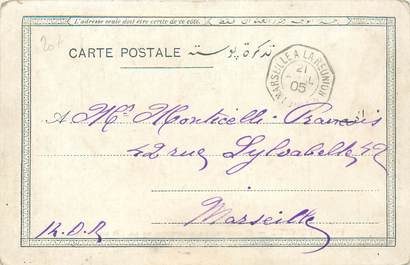 L'adresse seule doit être écrite de ce côté.
20f
CARTE POSTALE تذكرة پوسته
MARSEILLE A LA REUNION
21
05
A Mr. Monticelli-Francis
42 rue Sylvabelle 42
Marseille
R.D.R